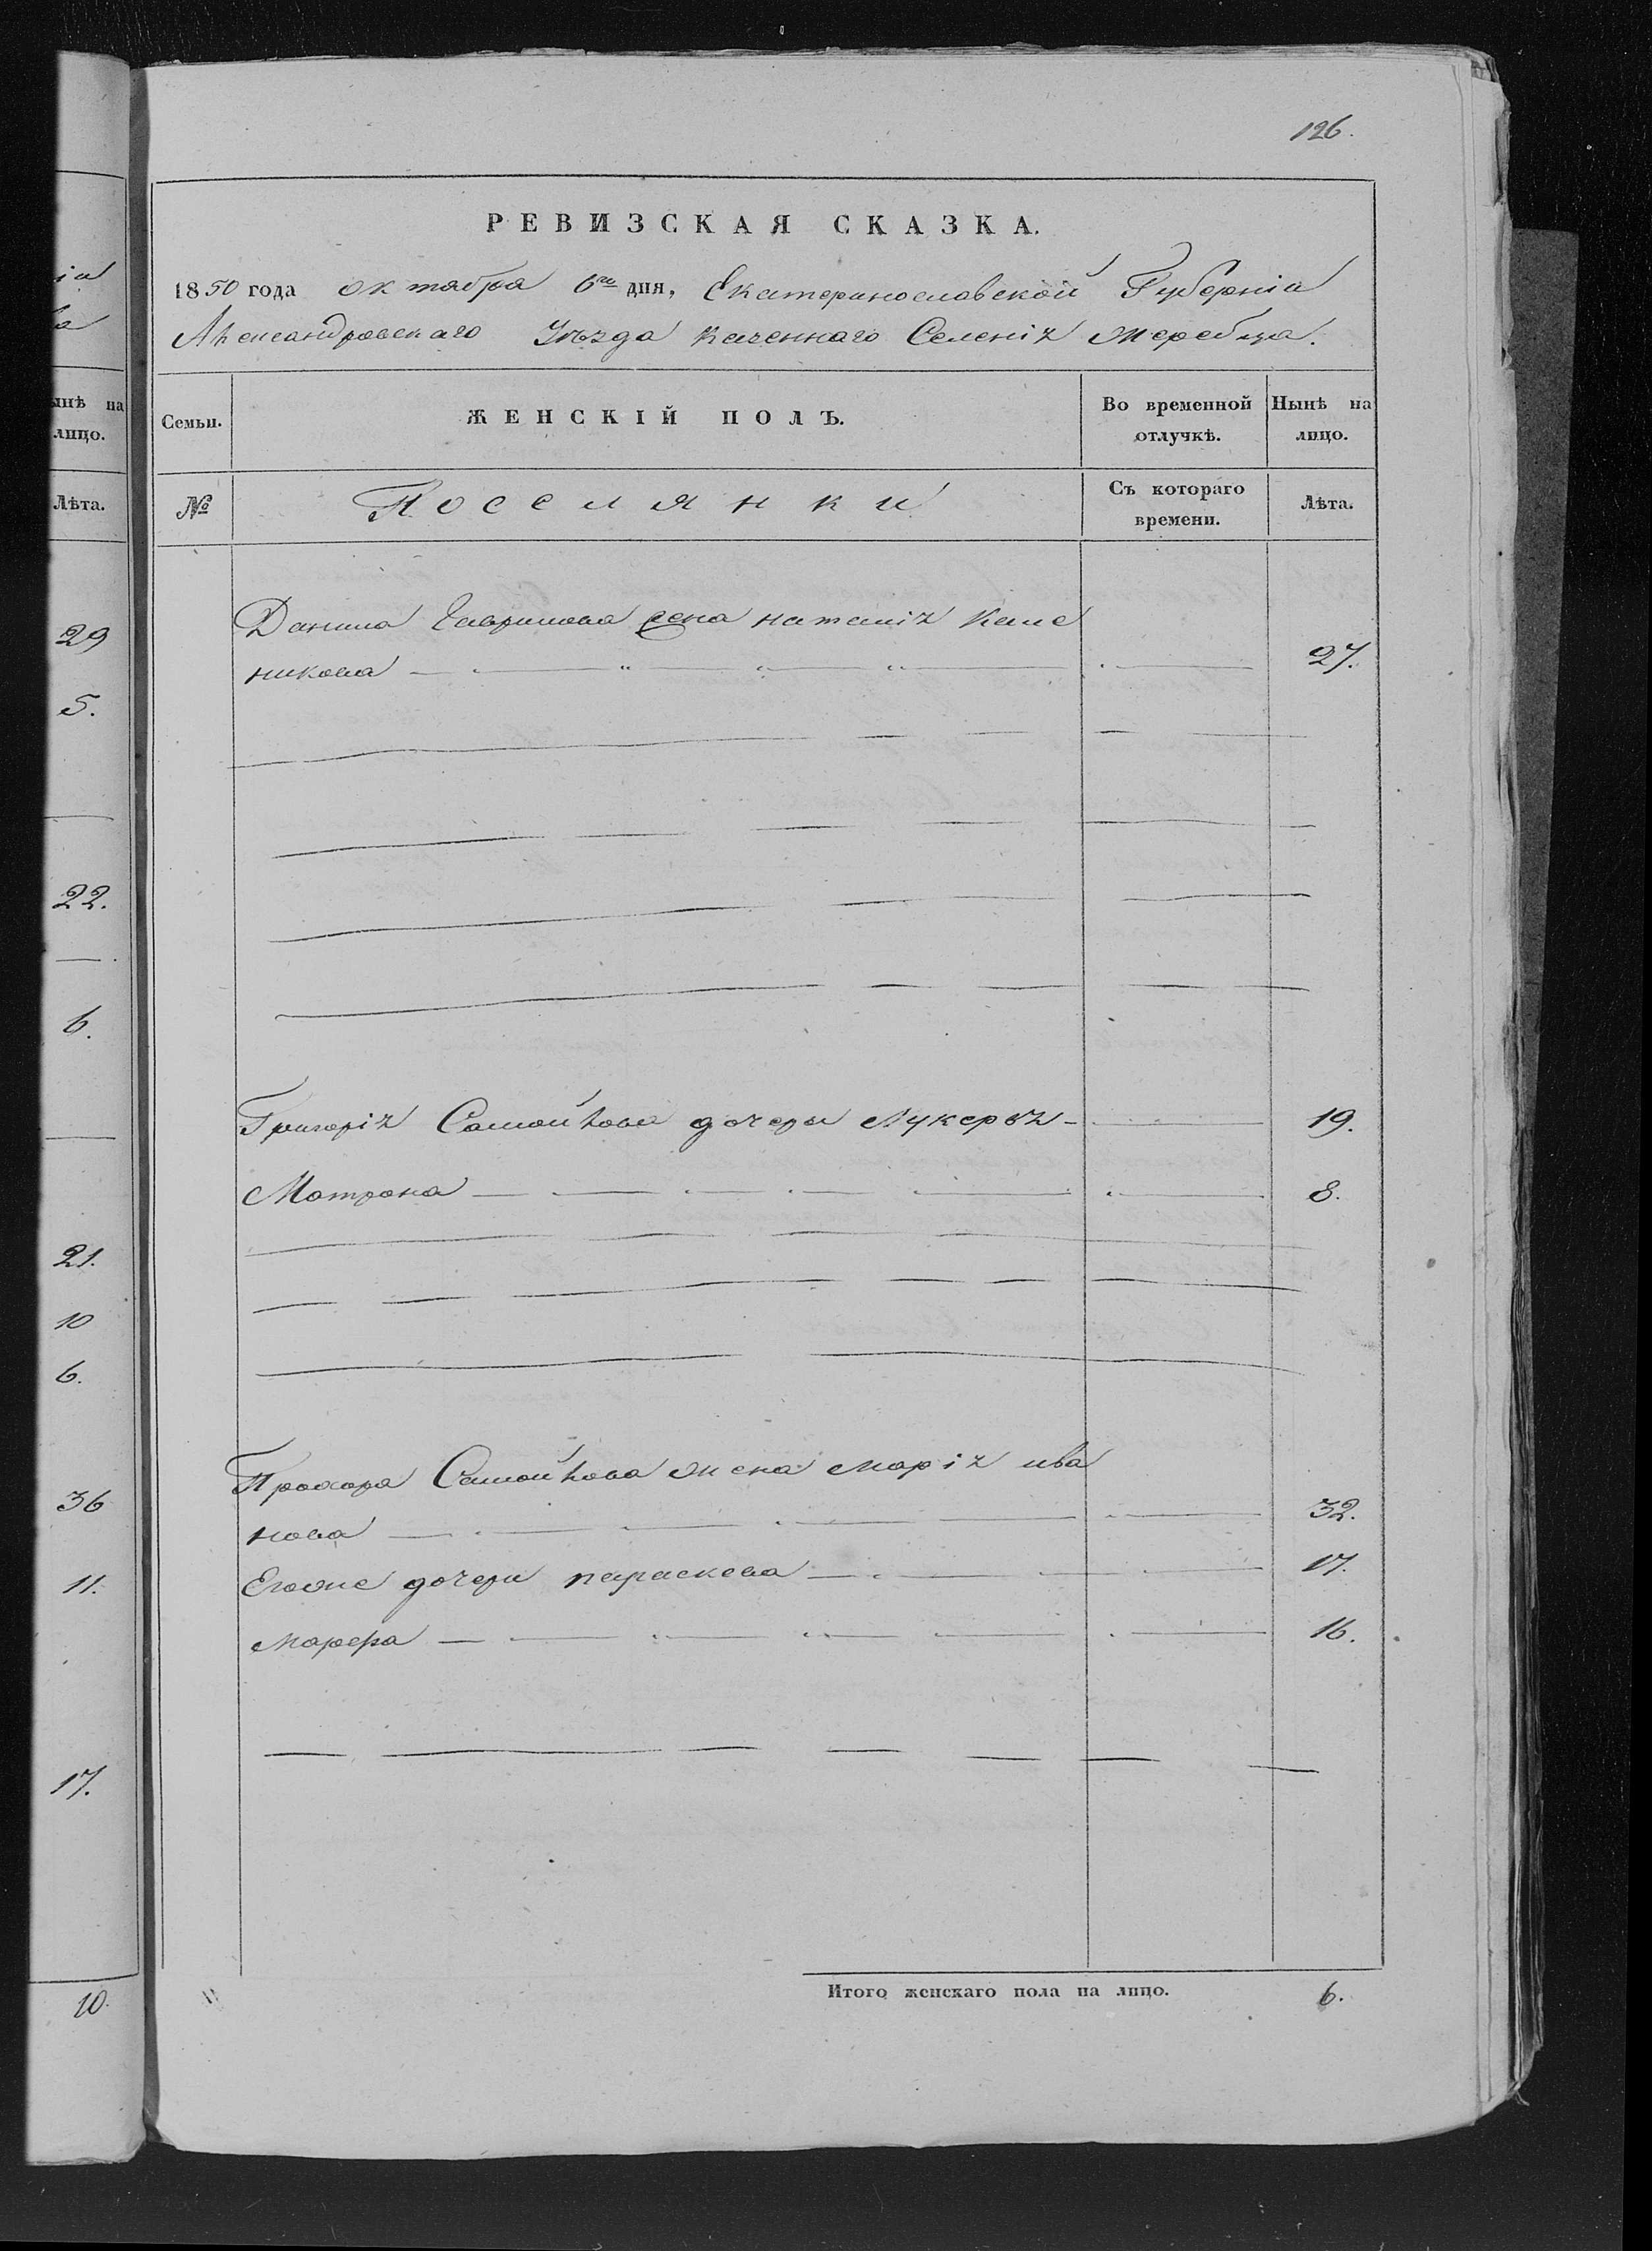 іи
а
ынѣ на
лицо.
Лѣта.
29
5.
22.
6.
21.
10
6.
36
11.
17.
10.
126.
РЕВИЗСКАЯ СКАЗКА.
1850 года октября 6го дня, Екатеринославской Губерніи
Александровскаго Уѣзда казеннаго Селенія Жеребца.
Семьи. ЖЕНСКІЙ ПОЛЪ. Во временной отлучкѣ. Нынѣ на лицо.
№ Поселянки Съ котораго времени. Лѣта.
Данила Гаврилова жена наталія Кале
никова 27.
Григорія Самойлова дочери Лукерья 19.
Матрона 8.
Прохора Самойлова жена марія ива
нова 32.
Егоже дочери параскева 17.
Марфа 16.
Итого женскаго пола на лицо. 6.